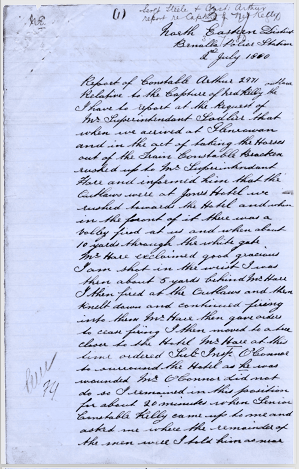 (1)
Sergt Steele & Const. Arthur
report re Capture of Ned Kelly
North Eastern District
Benalla Police Station
2nd July 1880
Report of Constable Arthur 2971
Relative to the Capture of Ned Kelly the
I have to report at the Request of
Mr Superintendant Sadlier that
when we arrived at Glenrowan
and in the act of taking the Horses
out of the Train Constable Bracken
rushed up to Mr Superintendant
Hare and informed him that the
Outlaws were at Jones Hotel we
rushed towards the Hotel and when
in the foront of it there was a
volley fired at us and when about
10 yards through the white gate
Mr Hare exclaimed good gracious
I am shot in the wrist I was
then about 5 yards behind Mr Hare
I then fired at the Outlaws and then
knelt down and continued firing
into them Mr Hare then gave orders
to cease firing I then moved to a tree
closer to the Hotel Mr Hare at this
time ordered Sub Inspr O'Connor
to surround the Hotel as he was
wounded Mr O'Connor did not
do so I remained in this position
for about 20 minutes when Senior
Constable Kelly came up to me and
asked me where the remainder of
the men were I told him as near